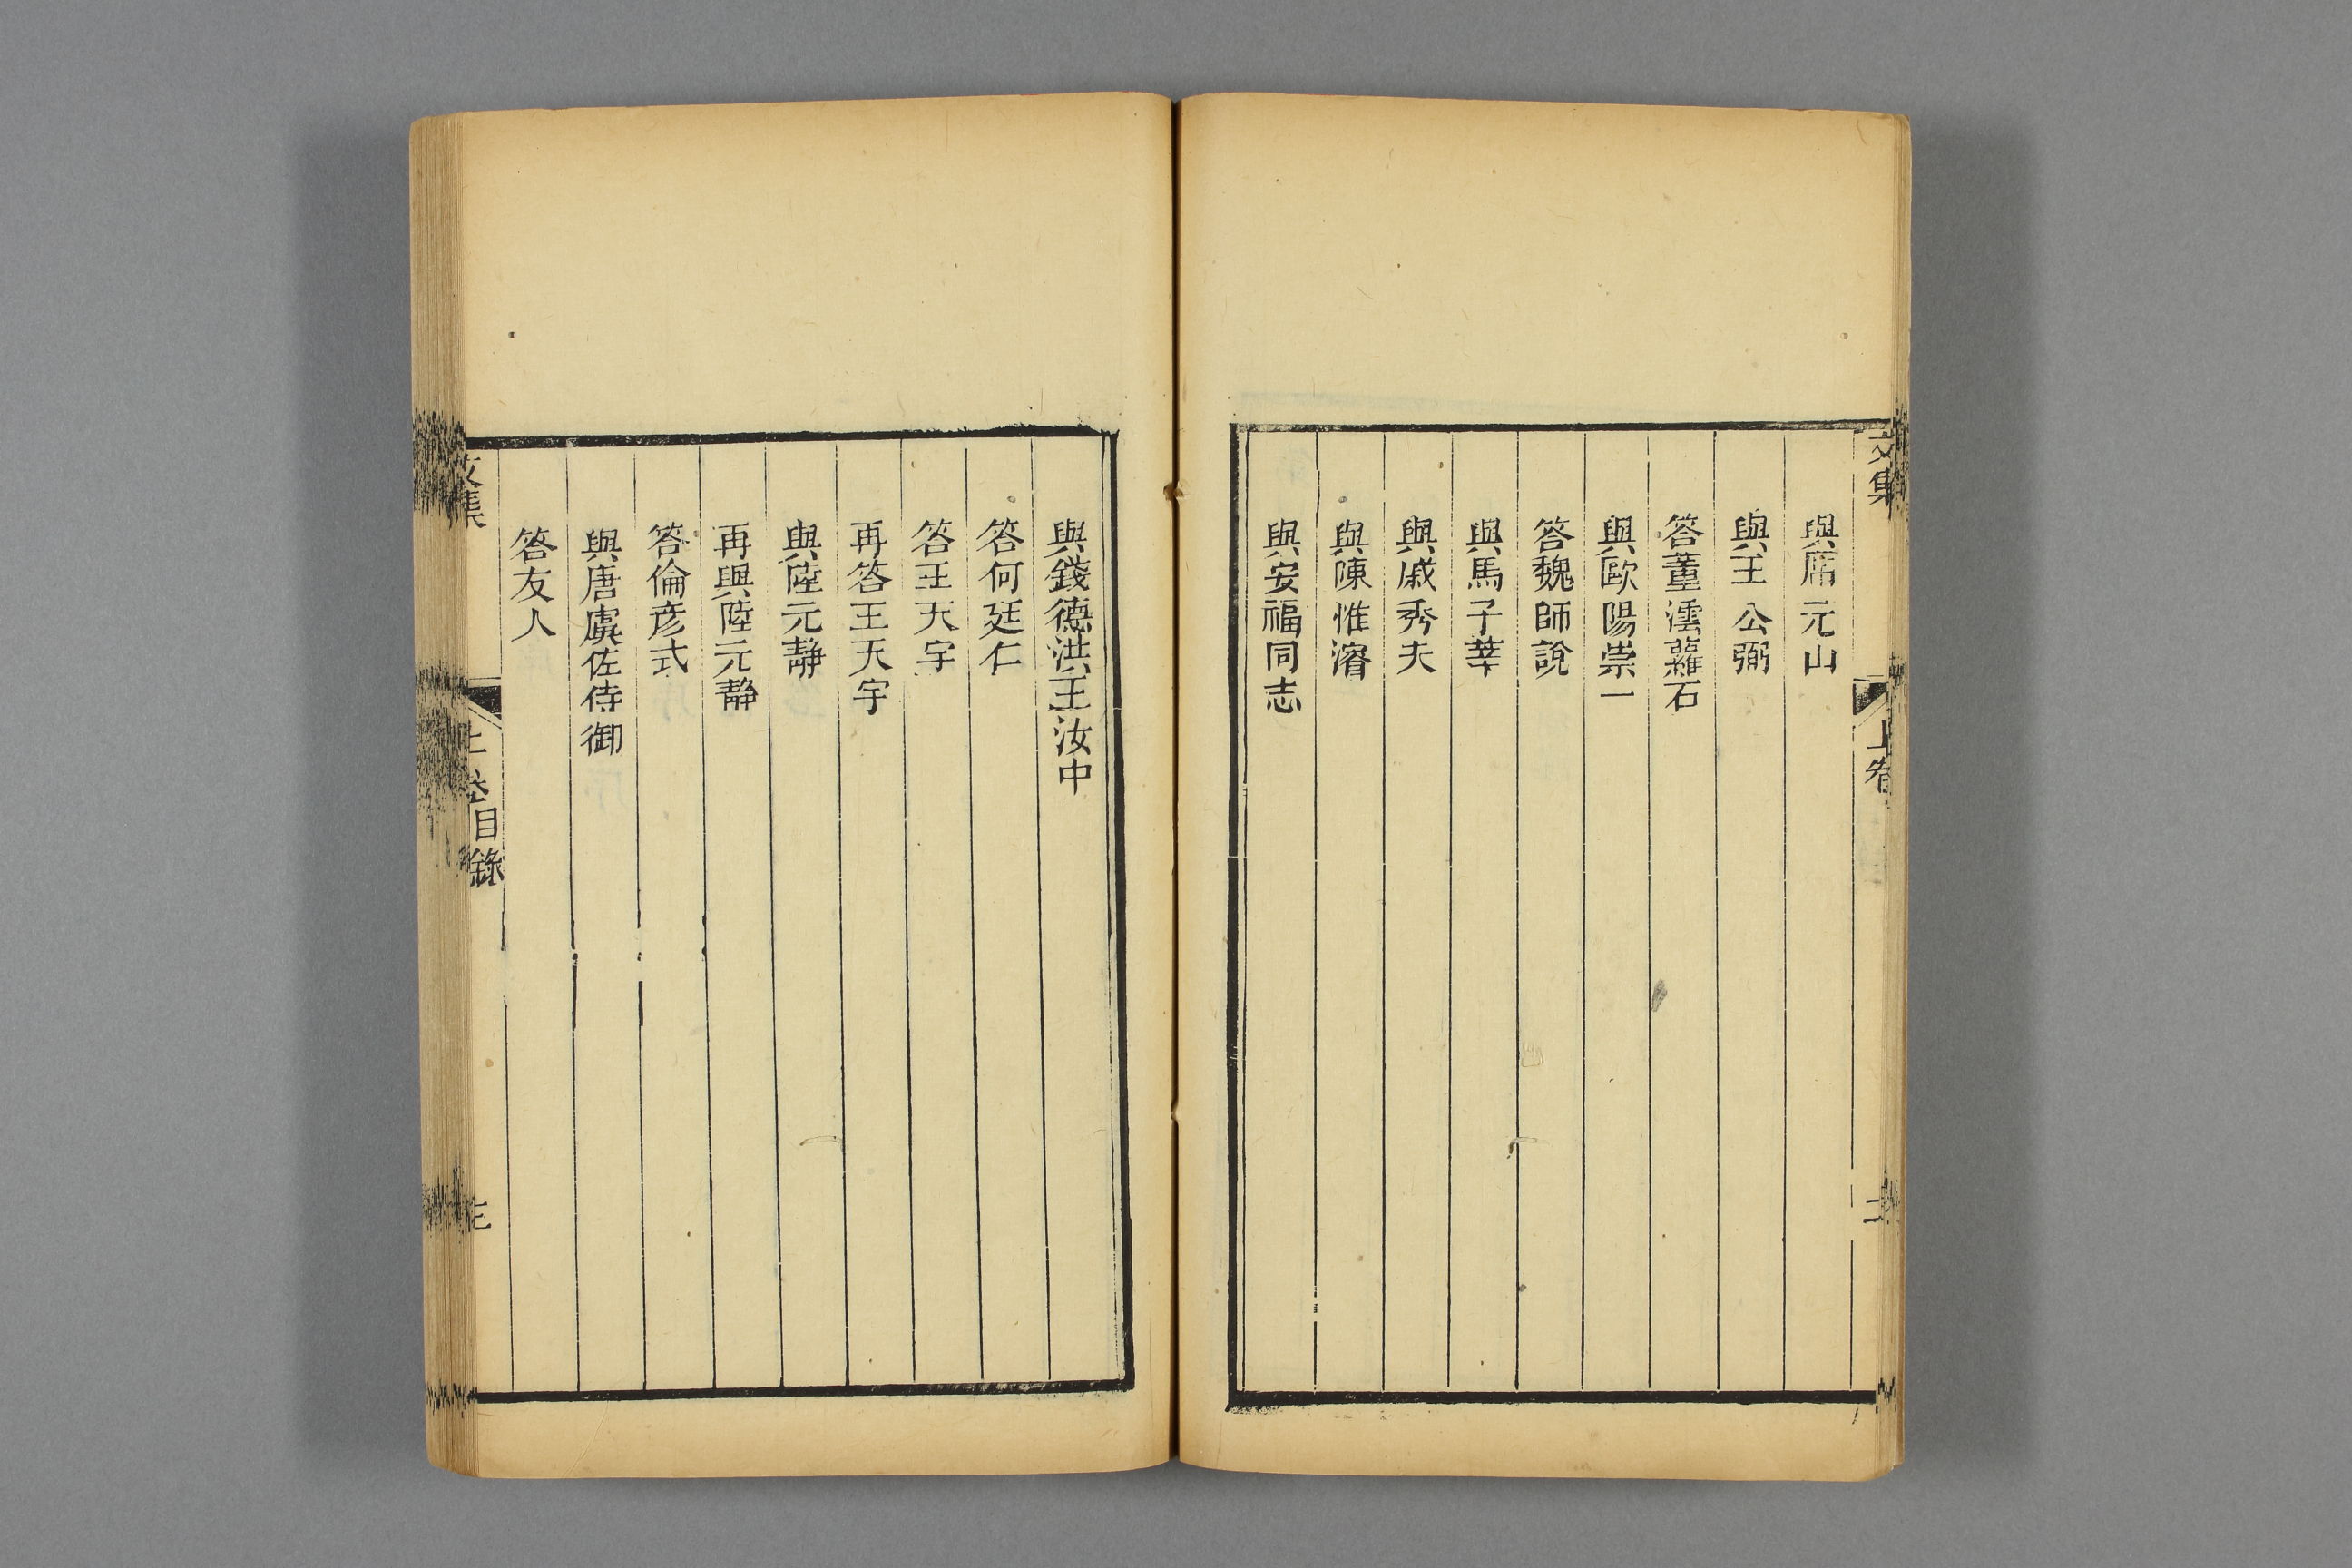 文集
上卷
二
與席元山
與王公弼
答董澐蘿石
與歐陽崇一
答魏師說
與馬子莘
與戚秀夫
與陳惟濬
與安福同志
與錢德洪王汝中
答何廷仁
答王天宇
再答王天宇
與陸元靜
再與陸元靜
答倫彥式
與唐虞佐侍御
答友人
文集
上卷目錄
三